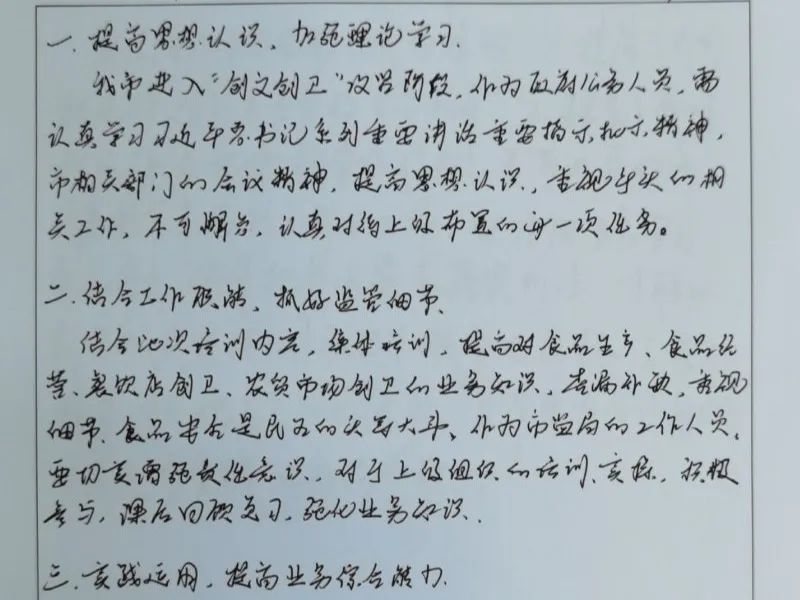 一、提高思想认识、加强理论学习.
我市进入“创文创卫”攻坚阶段，作为政府公务人员，需
认真学习习近平总书记系列重要讲话重要指示批示精神，
市相关部门的会议精神，提高思想认识，重视牵头的相
关工作，不可懈怠，认真对待上级布置的每一项任务。
二、结合工作职能、抓好监管细节、
结合此次培训内容，集体培训，提高对食品生产、食品经
营、餐饮店创卫、农贸市场创卫的业务知识，查漏补缺，重视
细节、食品安全是民生的头等大事、作为市监局的工作人员，
要切实增强责任意识，对于上级组织的培训、实操，积极
参与，课后回顾复习，强化业务知识.
三、实践运用，提高业务综合能力.